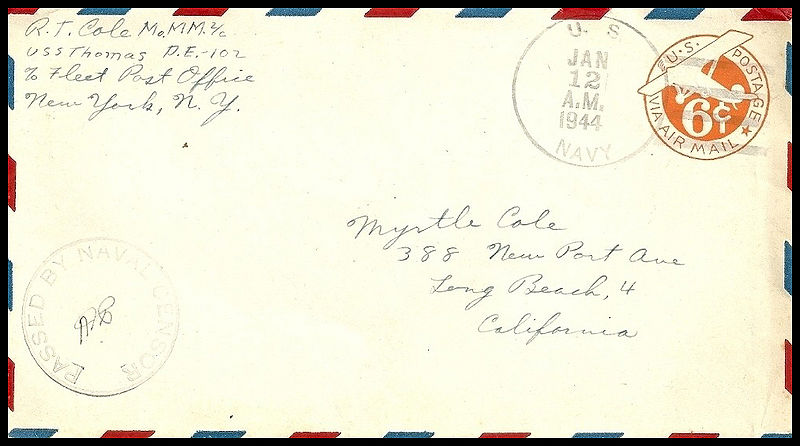 R. T. Cole Mo.M.M. 2/c
USS Thomas D.E.-102
% Fleet Post Office
New York, N. Y.
U. S.
JAN
12
A.M.
1944
NAVY
U.S. POSTAGE
6¢
VIA AIR MAIL
Myrtle Cole
388 New Port Ave
Long Beach, 4
California
PASSED BY NAVAL CENSOR